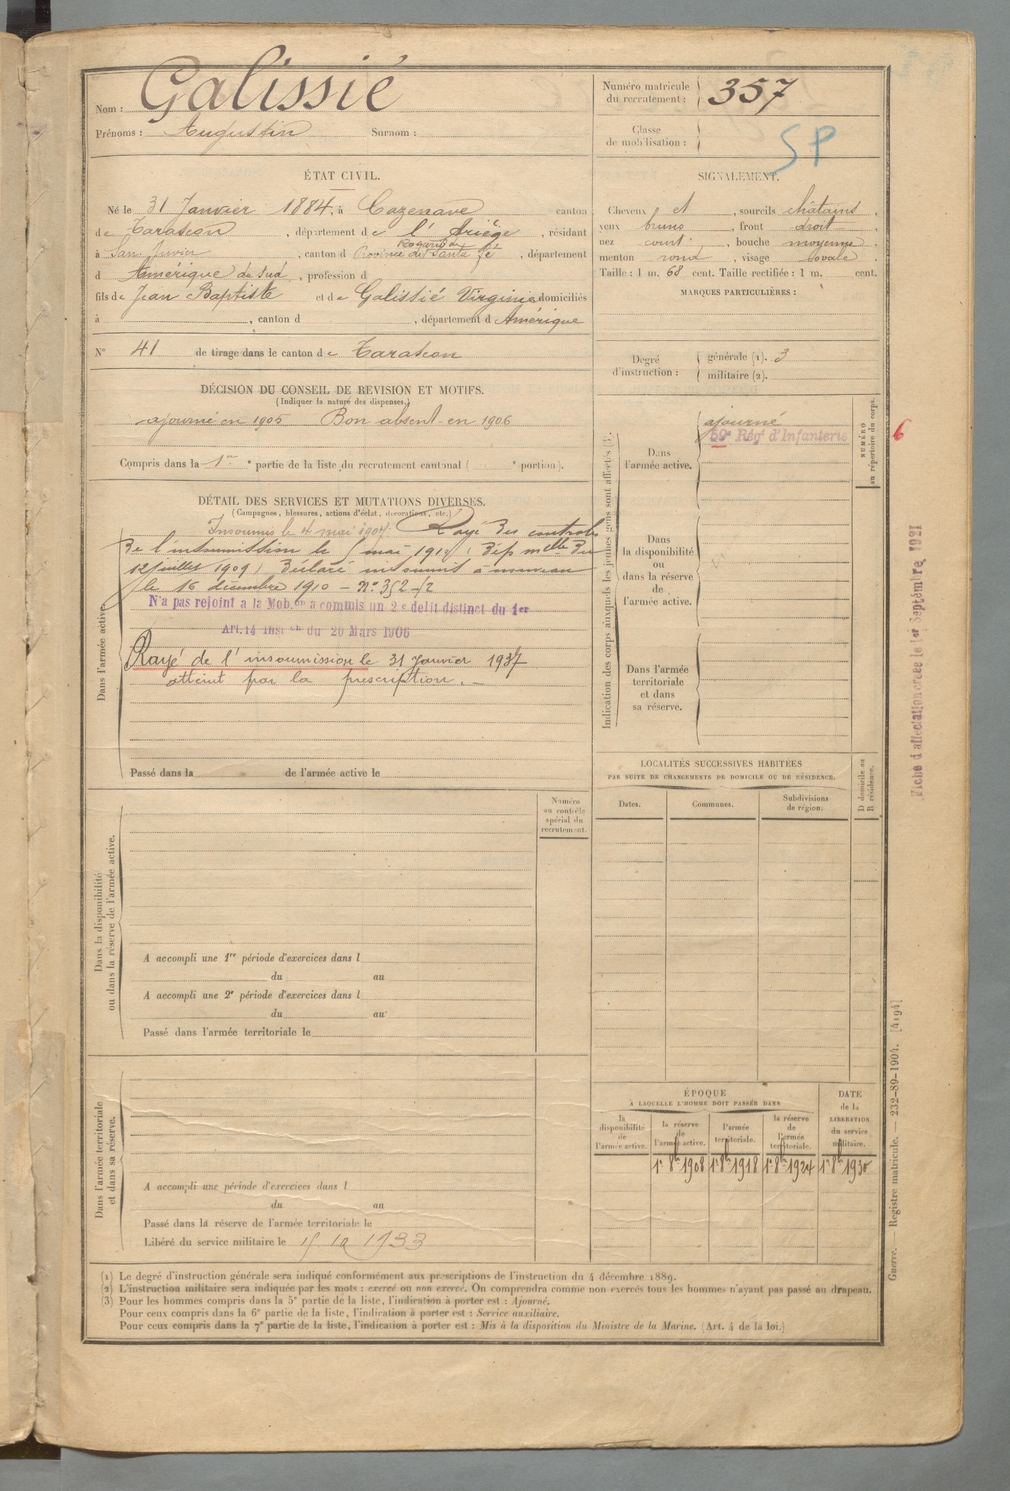 Nom : Galissié
Prénoms : Augustin Surnom :
Numéro matricule du recrutement : 357
Classe de mobilisation :
SP
ÉTAT CIVIL.
Né le 31 Janvier 1884, à Cazenave canton
de Tarascon, département de l'Ariège, résidant
à San Javier, canton d Rosario de Province de Santa Fé, département
d Amérique du Sud, profession d
fils de Jean Baptiste et de Galissié Virginie domiciliés
à , canton d , département d Amérique
N° 41 de tirage dans le canton de Tarascon
SIGNALEMENT.
Cheveux et, sourcils châtains,
yeux bruns, front droit,
nez court, bouche moyenne,
menton rond, visage ovale.
Taille : 1 m. 68 cent. Taille rectifiée : 1 m, cent.
MARQUES PARTICULIÈRES :
Degré d'instruction : générale (1). 3
militaire (2).
DÉCISION DU CONSEIL DE REVISION ET MOTIFS.
(Indiquer la nature des dispenses.)
ajourné en 1905 Bon absent en 1906
Compris dans la 1re partie de la liste du recrutement cantonal ( e portion).
DÉTAIL DES SERVICES ET MUTATIONS DIVERSES.
(Campagnes, blessures, actions d'éclat, décorations, etc.)
Insoumis le 4 mai 1907. Rayé des controles
de l'insoumission le mai
12 juillet 1909, Déclaré insoumis à nouveau
le 16 décembre 1910 – N° 352-
N'a pas rejoint a la Mob.on a commis un 2e delit distinct du 1er
Art. 14 Inst on du 20 Mars 1906
Rayé de l'insoumission le 31 Janvier 1937
atteint par la prescription. –
Dans l'armée active.
Passé dans la de l'armée active le
Indication des corps auxquels les jeunes gens sont affectés (3).
Dans l'armée active.
ajourné
59e Régt d'Infanterie
Dans la disponibilité ou dans la réserve de l'armée active.
Dans l'armée territoriale et dans sa réserve.
NUMÉRO au répertoire du corps.
6
Fiche d'affectation créée le 1er Septembre 1921
LOCALITÉS SUCCESSIVES HABITÉES
PAR SUITE DE CHANGEMENTS DE DOMICILE OU DE RÉSIDENCE.
Dates. Communes. Subdivisions de région. D domicile ou R résidence.
Numéro au contrôle spécial du recrutement.
Dans la disponibilité ou dans la réserve de l'armée active.
A accompli une 1re période d'exercices dans l
du au
A accompli une 2e période d'exercices dans l
du au
Passé dans l'armée territoriale le
Dans l'armée territoriale et dans sa réserve.
A accompli une période d'exercices dans l
du au
Passé dans la réserve de l'armée territoriale le
Libéré du service militaire le 15 10 1933
ÉPOQUE
À LAQUELLE L'HOMME DOIT PASSER DANS
la disponibilité de l'armée active.
la réserve de l'armée active.
l'armée territoriale.
la réserve de l'armée territoriale.
DATE de la LIBÉRATION du service militaire.
1r 8bre 1908 1r 8bre 1918 1r 8bre 1924 1r 8bre 1930
Guerre. — Registre matricule. — 232-89-1904. [4194]
(1) Le degré d'instruction générale sera indiqué conformément aux prescriptions de l'instruction du 4 décembre 1889.
(2) L'instruction militaire sera indiquée par les mots : exercé ou non exercé. On comprendra comme non exercés tous les hommes n'ayant pas passé au drapeau.
(3) Pour les hommes compris dans la 5e partie de la liste, l'indication à porter est : Ajourné.
Pour ceux compris dans la 6e partie de la liste, l'indication à porter est : Service auxiliaire.
Pour ceux compris dans la 7e partie de la liste, l'indication à porter est : Mis à la disposition du Ministre de la Marine. (Art. 4 de la loi.)